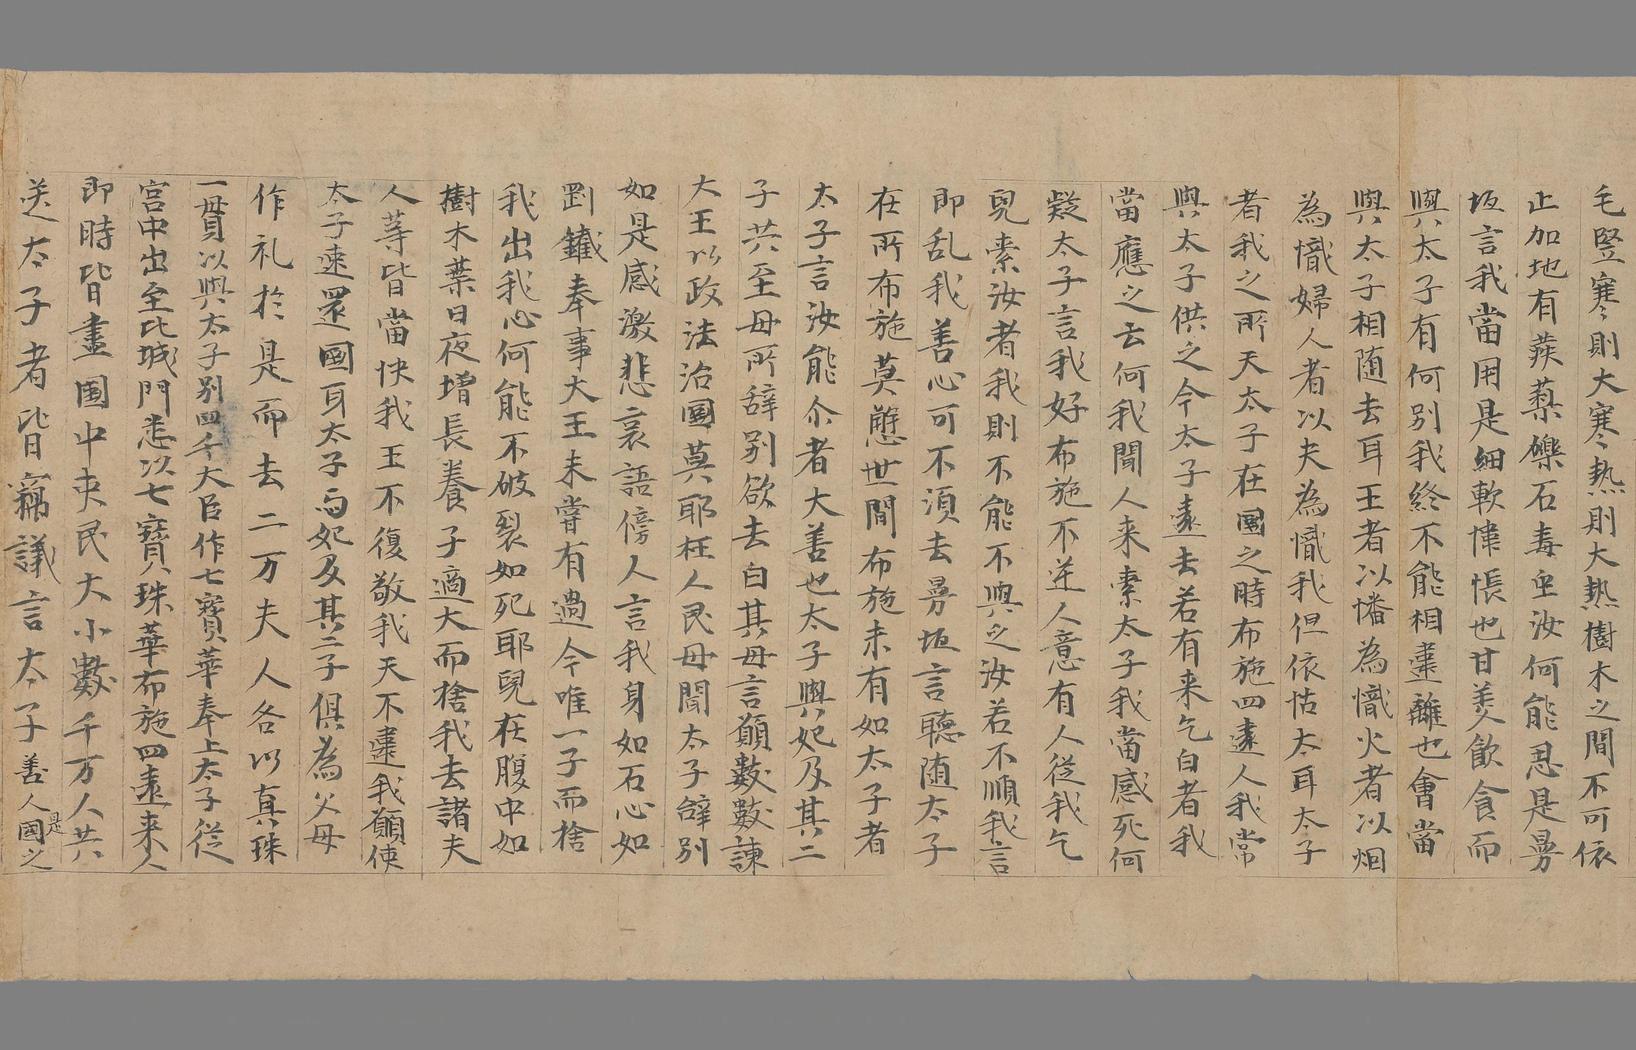 毛竪寒則大寒熱則大熱樹木之間不可依
止加地有蒺䔧礫石毒虫汝何能忍是曼
坻言我當用是細軟幃悵也甘美飲食而
與太子有何別我終不能相遠離也會當
與太子相随去耳王者以幡為幟火者以烟
為幟婦人者以夫為幟我但依怙太耳太子
者我之所天太子在國之時布施四遠人我常
與太子供之今太子遠去若有来乞白者我
當應之云何我聞人来索太子我當感死何
疑太子言我好布施不逆人意有人従我乞
兒索汝者我則不能不與之汝若不順我言
即乱我善心可不須去曼坻言聴随太子
在所布施莫懸世間布施未有如太子者
太子言汝能尒者大善也太子與妃及其二
子共至母所辞別欲去白其母言願數數諫
大王以政法治國莫耶枉人民母聞太子辞別
如是感激悲哀語傍人言我身如石心如
剛鐵奉事大王未嘗有過今唯一子而捨
我出我心何能不破裂如死耶兒在腹中如
樹木葉日夜増長養子適大而捨我去諸夫
人等皆當快我王不復敬我天不違我願使
太子速還國耳太子与妃及其二子俱為父母
作礼於是而去二万夫人各以真珠
一貫以與太子別四千大臣作七寳華奉上太子従
宮中出至北城門悉以七寳珠華布施四遠来人
即時皆盡国中吏民大小數千万人共
送太子者皆竊議言太子善人是國之